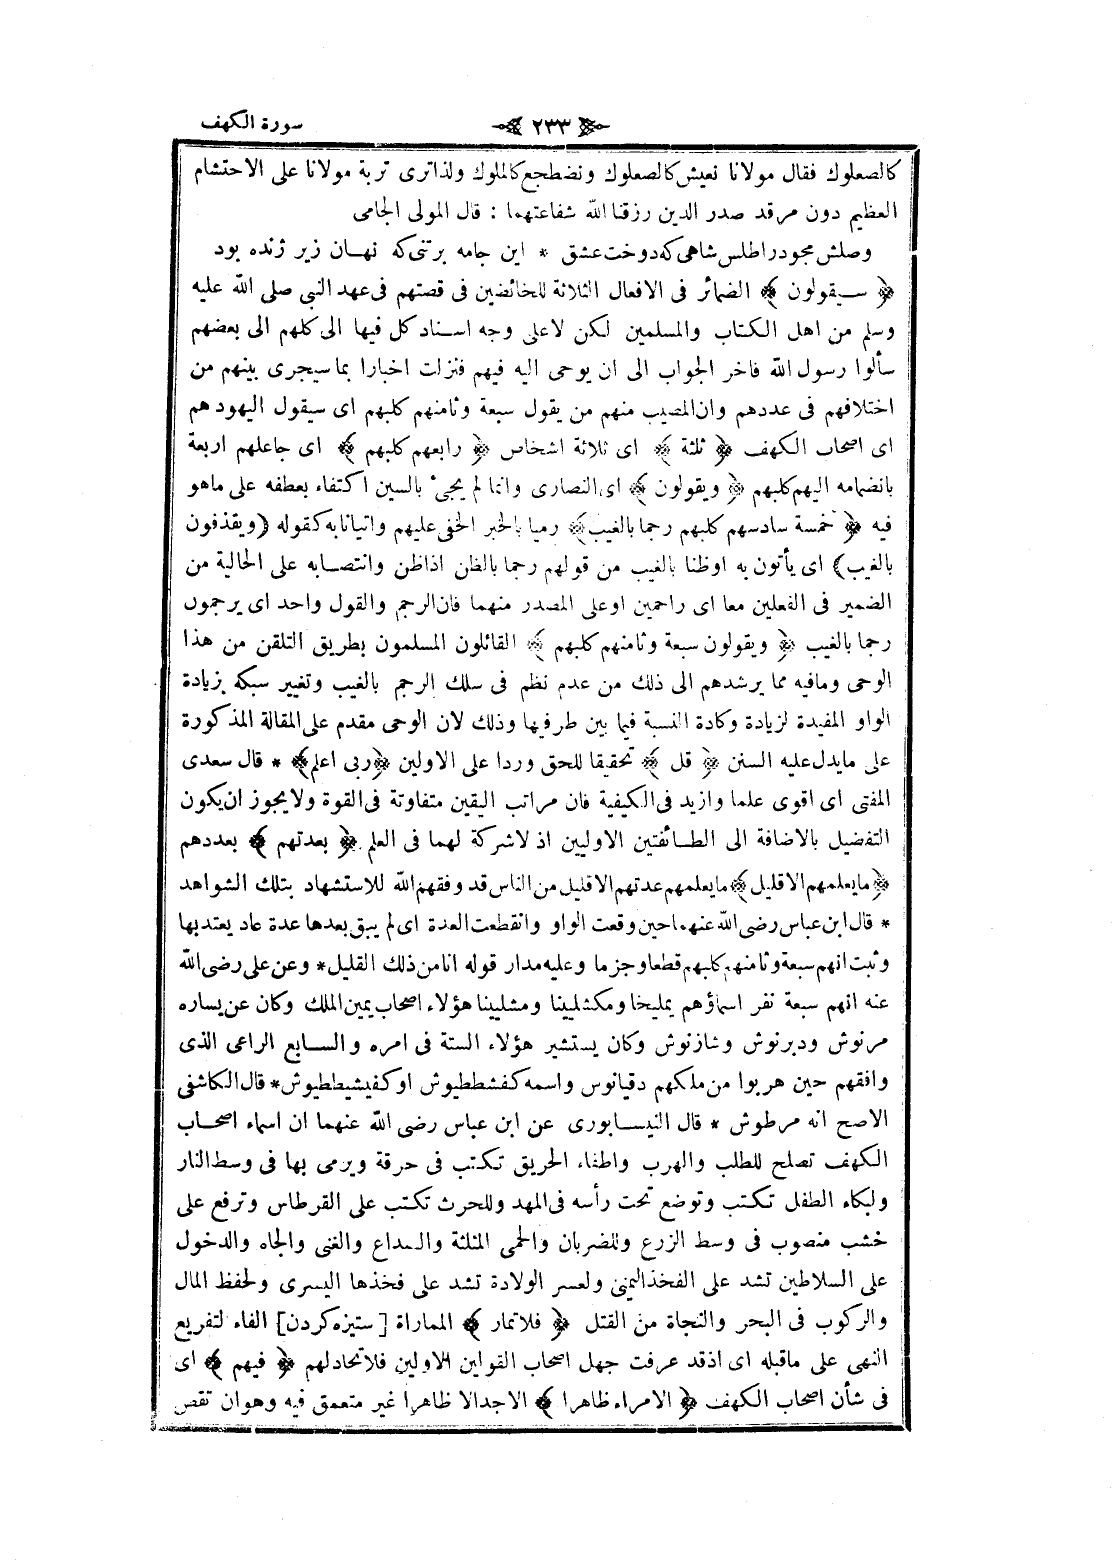 سورة الكهف
٢٣٣
كالصعلوك فقال مولانا نعيش كالصعلوك ونضطجع كالملوك ولذاترى تربة مولانا على الاحتشام
العظيم دون مرقد صدر الدين رزقنا الله شفاعتهما : قال المولى الجامى
وصلش مجودراطلس شاهى كه دوخت عشق * اين جامه برتنى كه نهان زير ژنده بود
﴿ سيقولون ﴾ الضمائر فى الافعال الثلاثة للخائضين فى قصتهم فى عهد النبي صلى الله عليه
وسلم من اهل الكتاب والمسلمين لكن لاعلى وجه اسناد كل فيها الى كلهم الى بعضهم
سألوا رسول الله فاخر الجواب الى ان يوحى اليه فيهم فنزلت اخبارا بماسيجرى بينهم من
اختلافهم فى عددهم وان المصيب منهم من يقول سبعة وثامنهم كلبهم اى سيقول اليهود هم
اى اصحاب الكهف ﴿ ثلثة ﴾ اى ثلاثة اشخاص ﴿ رابعهم كلبهم ﴾ اى جاعلهم اربعة
بانضمامه اليهم كلبهم ﴿ ويقولون ﴾ اى النصارى وانما لم يجئ بالسين اكتفاء بعطفه على ماهو
فيه ﴿ خمسة سادسهم كلبهم رجما بالغيب ﴾ رميا بالخبر الخفى عليهم واتيانا به كقوله (ويقذفون
بالغيب) اى يأتون به اوظنا بالغيب من قولهم رجما بالظن اذاظن وانتصابه على الحالية من
الضمير فى الفعلين معا اى راحمين اوعلى المصدر منهما فان الرجم والقول واحد اى يرجمون
رجما بالغيب ﴿ ويقولون سبعة وثامنهم كلبهم ﴾ القائلون المسلمون بطريق التلقن من هذا
الوحى ومافيه مما يرشدهم الى ذلك من عدم نظم فى سلك الرجم بالغيب وتغيير سبكه بزيادة
الواو المفيدة لزيادة وكادة النسبة فيما بين طرفيها وذلك لان الوحى مقدم على المقالة المذكورة
على مايدل عليه السنن ﴿ قل ﴾ تحقيقا للحق وردا على الاولين ﴿ ربى اعلم ﴾ * قال سعدى
المفتى اى اقوى علما وازيد فى الكيفية فان مراتب اليقين متفاوتة فى القوة ولايجوز ان يكون
التفضيل بالاضافة الى الطائفتين الاوليين اذ لاشركة لهما فى العلم ﴿ بعدتهم ﴾ بعددهم
﴿ مايعلمهم الاقليل ﴾ مايعلمهم عدتهم الاقليل من الناس قد وفقهم الله للاستشهاد بتلك الشواهد
* قال ابن عباس رضى الله عنهما حين وقعت الواو وانقطعت العدة اى لم يبق بعدها عدة عاد يعتدبها
وثبت انهم سبعة وثامنهم كلبهم قطعا وجزما وعليه مدار قوله انا من ذلك القليل * وعن على رضى الله
عنه انهم سبعة نفر اسماؤهم يمليخا ومكشليينا ومشليينا هؤلاء اصحاب يمين الملك وكان عن يساره
مرنوش ودبرنوش وشازنوش وكان يستشير هؤلاء الستة فى امره والسابع الراعى الذى
وافقهم حين هربوا من ملكهم دقيانوس واسمه كفشططيوش اوكفيشيططيوش * قال الكاشفى
الاصح انه مرطوش * قال النيسابورى عن ابن عباس رضى الله عنهما ان اسماء اصحاب
الكهف تصلح للطلب والهرب واطفاء الحريق تكتب فى خرقة ويرمى بها فى وسط النار
ولبكاء الطفل تكتب وتوضع تحت رأسه فى المهد وللحرث تكتب على القرطاس وترفع على
خشب منصوب فى وسط الزرع وللضربان والحمى المثلثة والصداع والغنى والجاه والدخول
على السلاطين تشد على الفخذ اليمنى ولعسر الولادة تشد على فخذها اليسرى ولحفظ المال
والركوب فى البحر والنجاة من القتل ﴿ فلاتمار ﴾ المماراة [ستيزه كردن] الفاء لتفريع
النهى على ماقبله اى اذقد عرفت جهل اصحاب القولين الاولين فلاتجادلهم ﴿ فيهم ﴾ اى
فى شأن اصحاب الكهف ﴿ الامراء ظاهرا ﴾ الاجدالا ظاهرا غير متعمق فيه وهوان تقص